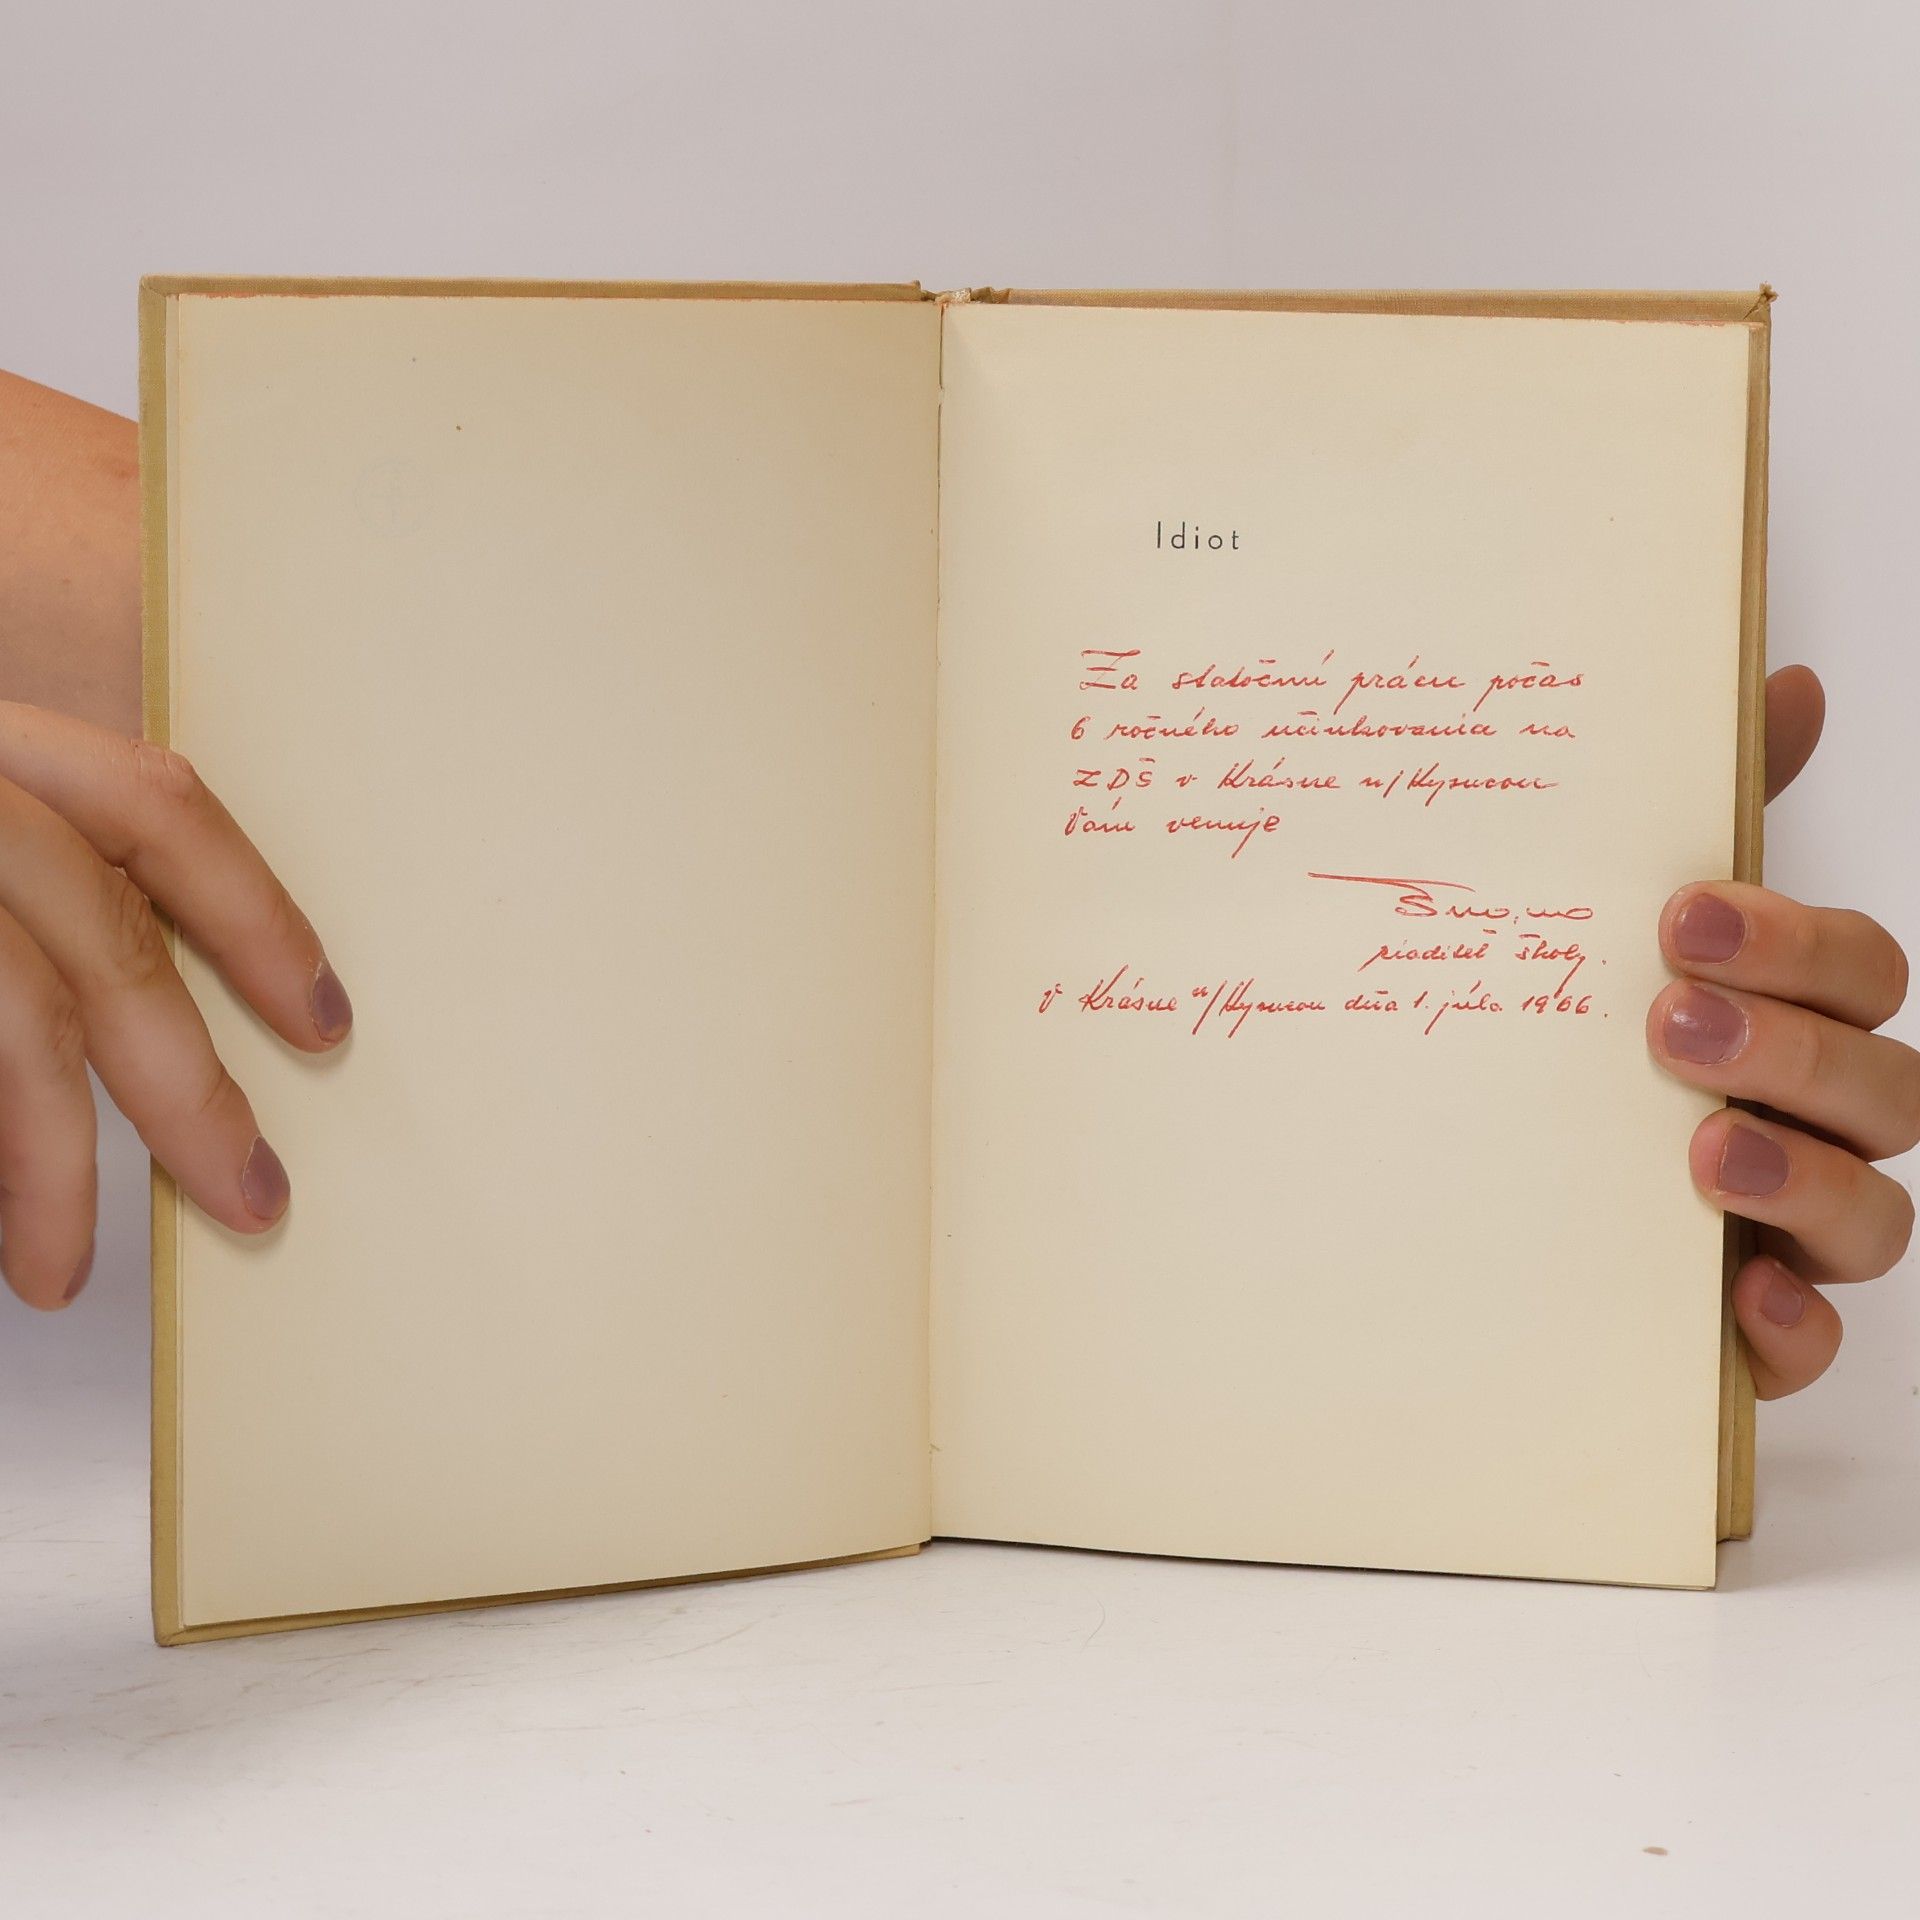 Idiot
Za statočnú prácu počas
6 ročného učinkovania na
ZDŠ v Krásne n/Kysucou
Vám venuje
riaditeľ školy.
V Krásne n/Kysucou dňa 1. júla 1966.